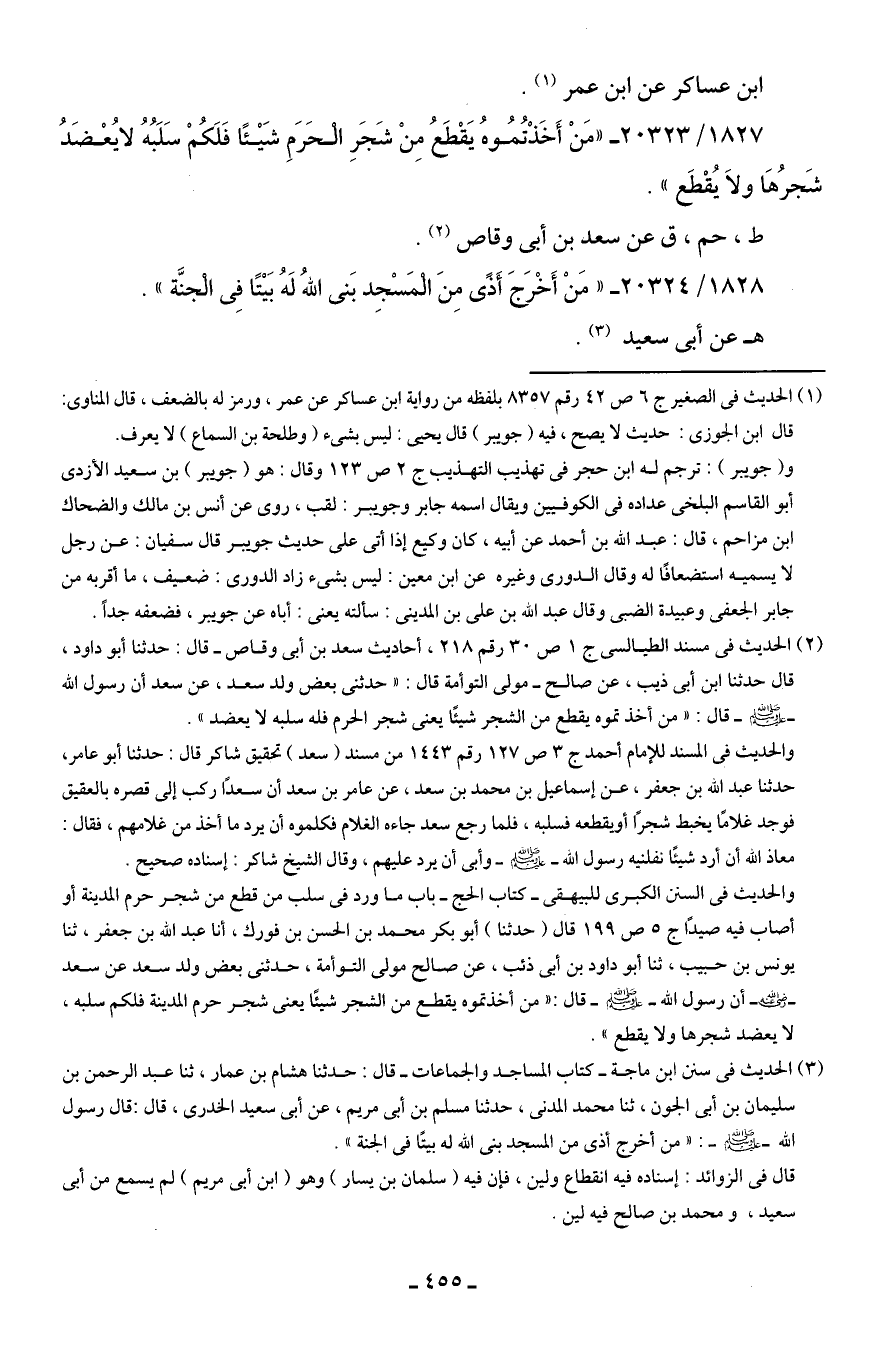 ابن عساكر عن ابن عمر (١) .
١٨٢٧/ ٢٠٣٢٣ـ «مَنْ أَخَذْتُمُوهُ يَقْطَعُ مِنْ شَجَرِ الْحَرَمِ شَيْئًا فَلَكُمْ سَلَبُهُ لايُعْضَدُ
شَجَرُهَا ولاَ يُقْطَع » .
ط ، حم ، ق عن سعد بن أبى وقاص (٢) .
١٨٢٨/ ٢٠٣٢٤ـ « مَنْ أَخْرَجَ أَذًى مِنَ الْمَسْجِد بَنى اللهُ لَهُ بَيْتًا فِى الْجنَّة » .
هـ عن أبى سعيد (٣) .
(١) الحديث فى الصغير ج ٦ ص ٤٢ رقم ٨٣٥٧ بلفظه من رواية ابن عساكر عن عمر ، ورمز له بالضعف ، قال المناوى:
قال ابن الجوزى : حديث لا يصح ، فيه ( جويبر ) قال يحيى : ليس بشىء ( وطلحة بن السماع ) لا يعرف.
و( جويبر ) : ترجم له ابن حجر فى تهذيب التهذيب ج ٢ ص ١٢٣ وقال : هو ( جويبر ) بن سعيد الأزدى
أبو القاسم البلخى عداده فى الكوفيين ويقال اسمه جابر وجويبر : لقب ، روى عن أنس بن مالك والضحاك
ابن مزاحم ، قال : عبد الله بن أحمد عن أبيه ، كان وكيع إذا أتى على حديث جويبر قال سفيان : عن رجل
لا يسميه استضعافًا له وقال الدورى وغيره عن ابن معين : ليس بشىء زاد الدورى : ضعيف ، ما أقربه من
جابر الجعفى وعبيدة الضبى وقال عبد الله بن على بن المدينى : سألته يعنى : أباه عن جويبر ، فضعفه جداً .
(٢) الحديث فى مسند الطيالسى ج ١ ص ٣٠ رقم ٢١٨ ، أحاديث سعد بن أبى وقاص ـ قال : حدثنا أبو داود ،
قال حدثنا ابن أبى ذيب ، عن صالح ـ مولى التوأمة قال : « حدثنى بعض ولد سعد ، عن سعد أن رسول الله
ـ ﷺ ـ قال : « من أخذ تموه يقطع من الشجر شيئًا يعنى شجر الحرم فله سلبه لا يعضد » .
والحديث فى المسند للإمام أحمد ج ٣ ص ١٢٧ رقم ١٤٤٣ من مسند ( سعد ) تحقيق شاكر قال : حدثنا أبو عامر،
حدثنا عبد الله بن جعفر ، عن إسماعيل بن محمد بن سعد ، عن عامر بن سعد أن سعدًا ركب إلى قصره بالعقيق
فوجد غلامًا يخبط شجرًا أويقطعه فسلبه ، فلما رجع سعد جاءه الغلام فكلموه أن يرد ما أخذ من غلامهم ، فقال :
معاذ الله أن أرد شيئًا نفلنيه رسول الله ـ ﷺ ـ وأبى أن يرد عليهم ، وقال الشيخ شاكر : إسناده صحيح .
والحديث فى السنن الكبرى للبيهقى ـ كتاب الحج ـ باب ما ورد فى سلب من قطع من شجر حرم المدينة أو
أصاب فيه صيدًا ج ٥ ص ١٩٩ قال ( حدثنا ) أبو بكر محمد بن الحسن بن فورك ، أنا عبد الله بن جعفر ، ثنا
يونس بن حبيب ، ثنا أبو داود بن أبى ذئب ، عن صالح مولى التوأمة ، حدثنى بعض ولد سعد عن سعد
ـ رضي الله عنه ـ أن رسول الله ـ ﷺ ـ قال :« من أخذتموه يقطع من الشجر شيئًا يعنى شجر حرم المدينة فلكم سلبه ،
لا يعضد شجرها ولا يقطع » .
(٣) الحديث فى سنن ابن ماجة ـ كتاب المساجد والجماعات ـ قال : حدثنا هشام بن عمار ، ثنا عبد الرحمن بن
سليمان بن أبى الجون ، ثنا محمد المدنى ، حدثنا مسلم بن أبى مريم ، عن أبى سعيد الخدرى ، قال :قال رسول
الله ـ ﷺ ـ : « من أخرج أذى من المسجد بنى الله له بيتًا فى الجنة » .
قال فى الزوائد : إسناده فيه انقطاع ولين ، فإن فيه ( سلمان بن يسار ) وهو ( ابن أبى مريم ) لم يسمع من أبى
سعيد ، و محمد بن صالح فيه لين .
ـ ٤٥٥ ـ